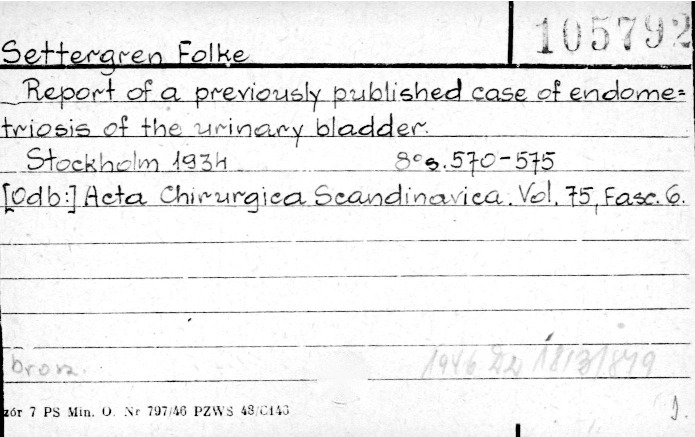 105792
Settergren Folke
Report of a previously published case of endome=
triosis of the urinary bladder.
Stockholm 1934 8° s. 570-575
[Odb:] Acta Chirurgica Scandinavica. Vol. 75, Fasc. 6.
bronz.
1946 Dz 1813/1879
zór 7 PS Min. O. Nr 797/46 PZWS 48/C143